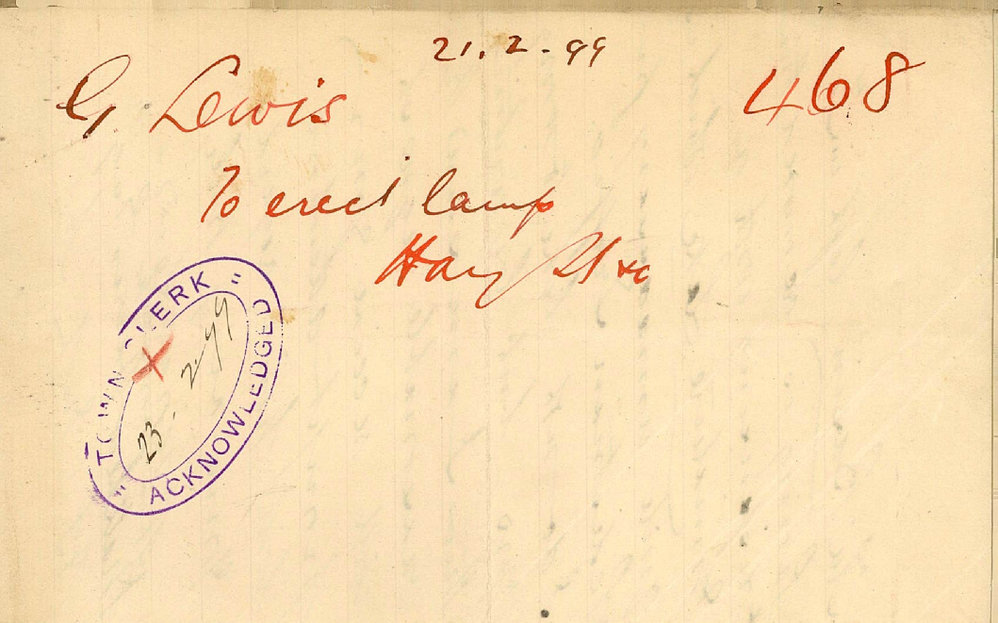 21.2-99
G Lewis 468
To erect lamp
Hay St &c
"TOWN CLERK"
23-2-99
ACKNOWLEDGED